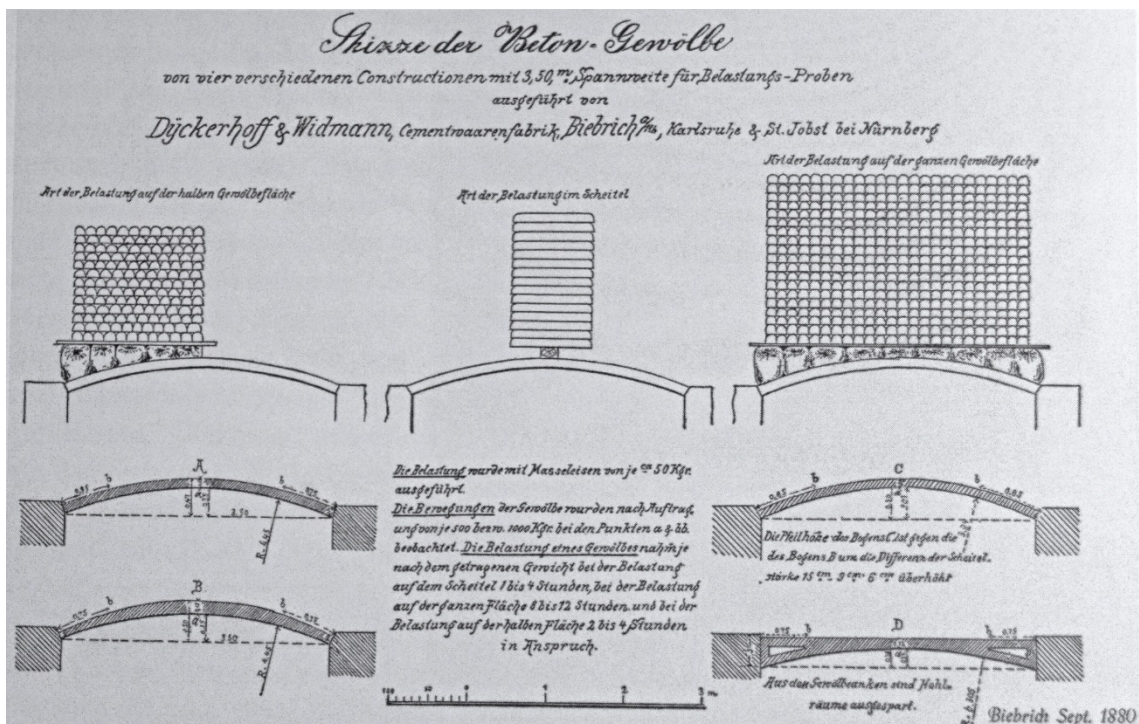 Skizze der Beton-Gewölbe
von vier verschiedenen Constructionen mit 3,50 m Spannweite für Belastungs-Proben
ausgeführt von
Dyckerhoff & Widmann, Cementwaarenfabrik, Biebrich a/Rh, Karlsruhe & St. Jobst bei Nürnberg
Art der Belastung auf der halben Gewölbefläche
Art der Belastung im Scheitel
Art der Belastung auf der ganzen Gewölbefläche
A
b
b
3.50
B
0,75
b
b
3.50
R. 4.45
Die Belastung wurde mit Masseleisen von je ca 50 Kgr.
ausgeführt.
Die Bewegungen der Gewölbe wurden nach Auftrag-
ung von je 500 bezw. 1000 Kgr. bei den Punkten a & bb.
beobachtet. Die Belastung eines Gewölbes nahm je
nach dem getragenen Gewicht bei der Belastung
auf dem Scheitel 1 bis 4 Stunden, bei der Belastung
auf der ganzen Fläche 8 bis 12 Stunden und bei der
Belastung auf der halben Fläche 2 bis 4 Stunden
in Anspruch.
C
0.85
b
b
0.85
Die Pfeilhöhe des Bogens C ist gegen die
des Bogens B um die Differenz der Scheitel-
stärke 15 cm - 9 cm = 6 cm überhöht
D
0.75
b
b
0.75
Aus den Gewölbeanken sind Hohl-
räume ausgespart.
100 50 0 1 2 3 m.
Biebrich Sept. 1880